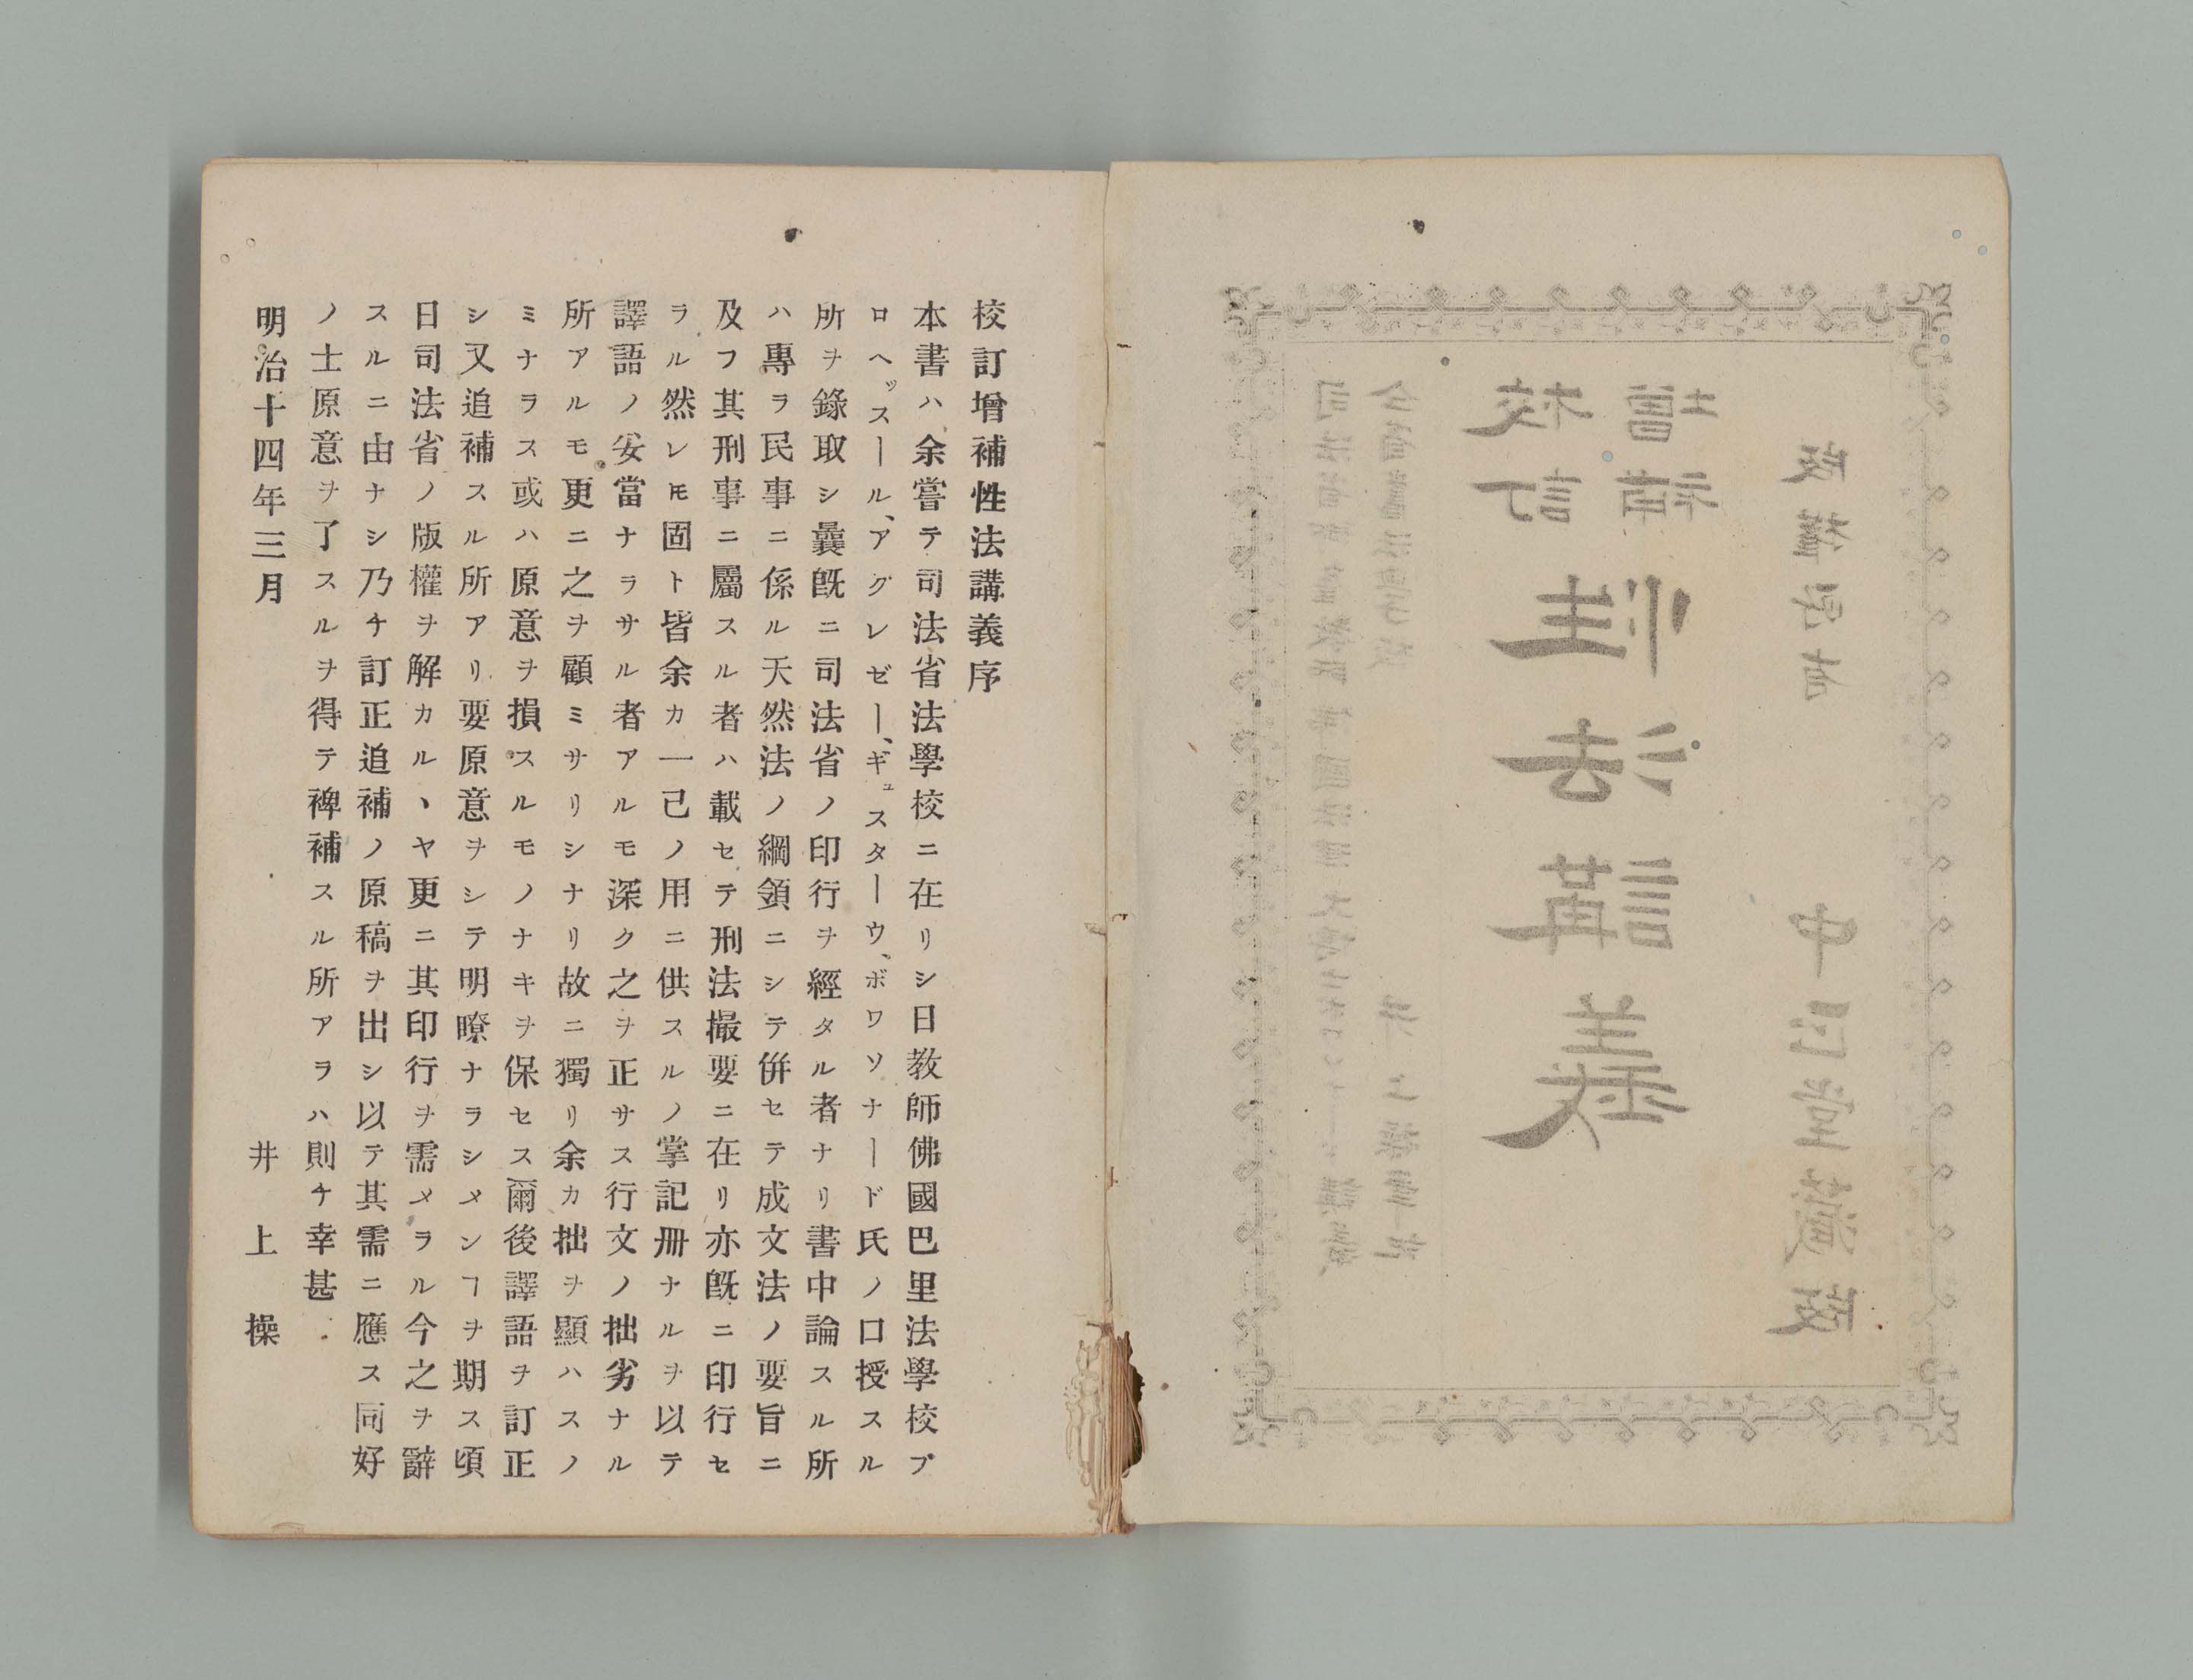 井上操筆記
校訂
增補
性法講義
版權所有
藏版
校訂增補性法講義序
本書ハ余嘗テ司法省法學校ニ在リシ日教師佛國巴里法學校プ
ロヘッスール、アグレゼー、ギュスターウ、ボワソナード氏ノ口授スル
所ヲ錄取シ曩既ニ司法省ノ印行ヲ經タル者ナリ書中論スル所
ハ專ラ民事ニ係ル天然法ノ綱領ニシテ併セテ成文法ノ要旨ニ
及フ其刑事ニ屬スル者ハ載セテ刑法撮要ニ在リ亦既ニ印行セ
ラル然レ𪜈固ト皆余カ一己ノ用ニ供スルノ掌記冊ナルヲ以テ
譯語ノ妥當ナラサル者アルモ深ク之ヲ正サス行文ノ拙劣ナル
所アルモ更ニ之ヲ顧ミサリシナリ故ニ獨リ余カ拙ヲ顯ハスノ
ミナラス或ハ原意ヲ損スルモノナキヲ保セス爾後譯語ヲ訂正
シ又追補スル所アリ要原意ヲシテ明瞭ナラシメンヿヲ期ス頃
日司法省ノ版權ヲ解カルヽヤ更ニ其印行ヲ需メラル今之ヲ辭
スルニ由ナシ乃チ訂正追補ノ原稿ヲ出シ以テ其需ニ應ス同好
ノ士原意ヲ了スルヲ得テ裨補スル所アラハ則チ幸甚
明治十四年三月　井上操